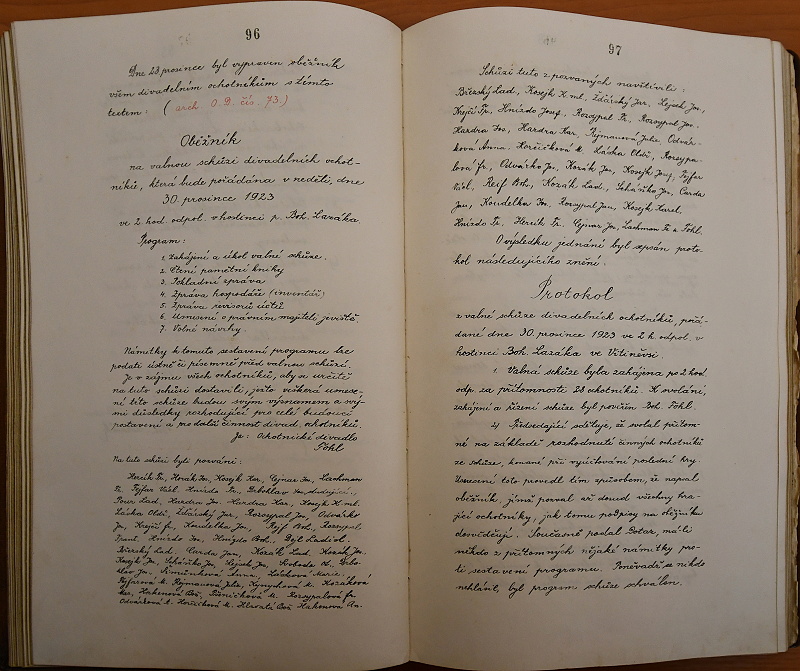 96
Dne 23 prosince byl vypraven oběžník
všem divadelním ochotníkům s tímto
textem: ( arch. O. D. čís. 73.)
Oběžník
na valnou schůzi divadelních ochot-
níků, která bude pořádána v neděli, dne
30. prosince 1923
ve 2 hod. odpol. v hostinci p. Boh. Lazáka
Program:
1. Zahájení a úkol valné schůze.
2. Čtení pamětní knihy
3. Pokladní zpráva
4. Zpráva hospodáře (inventář)
5. Zpráva revisorů účtů
6. Usnesení o právním majiteli jeviště.
7. Volné návrhy.
Námitky k tomuto sestavení programu lze
podati ústně či písemně před valnou schůzí.
Je v zájmu všech ochotníků, aby se určitě
na tuto schůzi dostavili, ježto veškerá usnese-
ní této schůze budou svým významem a svý-
mi důsledky rozhodující pro celé budoucí
postavení a pro další činnost divad. ochotníků.
Za: Ochotnické divadlo
Pöhl
Na tuto schůzi byli pozváni:
Hercík Fr., Horák Jos., Kosejk Kar., Cejnar Jan, Lachman
Fr., Fejfar Václ., Hnízdo Fr.,
Lad., Hardra Jos., Hardra Kar., Kosejk H. ml.
Lácha Oldř., Žďárský Jar., Rozsypal Jan, Odvárko
Jos., Krejčí Fr., Koudelka Jos., Reif Boh., Rozsypal
Frant., Hnízdo Jos., Hnízdo Boh.,
Břízský Lad., Čarda Jan, Kozák Lad., Kozák Jan,
Kosejk Jos., Scháňko Jan, Lejsek Jan,
Anna, Láchová Marie,
Fejfarová M., Rýjmanová Julie, M., Kozáková
Mar., Hakenová Bož., M., Rozsypalová Fr.
Odvárková A., Horčičková M., Bož., Hakenová An.
97
Schůzi tuto z pozvaných navštívili:
Břízský Lad., Kosejk H. ml., Žďárský Jar., Lejsek Jan,
Krejčí Fr., Hnízdo Josef, Rozsypal Fr., Rozsypal Jos.
Hardra Jos., Hardra Kar., Rýjmanová Julie, Odvár-
ková Anna, Horčičková M., Lácha Oldř., Rozsypa-
lová Fr., Odvárko Jan, Kozák Jan, Kosejk Josef, Fejfar
Václ., Reif Boh., Kozák Lad., Scháňko Jan, Čarda
Jan, Koudelka Jos., Rozsypal Jan, Kosejk Karel.
Hnízdo Fr., Hercík Fr., Cejnar Jan, Lachman Fr. a Pöhl.
O výsledku jednání byl sepsán proto-
kol následujícího znění:
Protokol
z valné schůze divadelních ochotníků, pořá-
dané dne 30. prosince 1923 ve 2 h. odpol. v
hostinci Boh. Lazáka ve Vitiněvsi.
1. Valná schůze byla zahájena po 2 hod.
odp. za přítomnosti 28 ochotníků. K svolání,
zahájení a řízení schůze byl pověřen Boh. Pöhl.
2) Předsedající sděluje, že svolal přítom-
né na základě rozhodnutí činných ochotníků
ze schůze, konané při vyúčtování poslední hry.
Usnesení toto provedl tím způsobem, že napsal
oběžník, jímž pozval až dosud všechny hra-
jící ochotníky, jak tomu podpisy na oběžníku
dosvědčují. Současně podal dotaz, má-li
někdo z přítomných nějaké námitky pro-
ti sestavení programu. Poněvadž se nikdo
nehlásil, byl program schůze schválen.